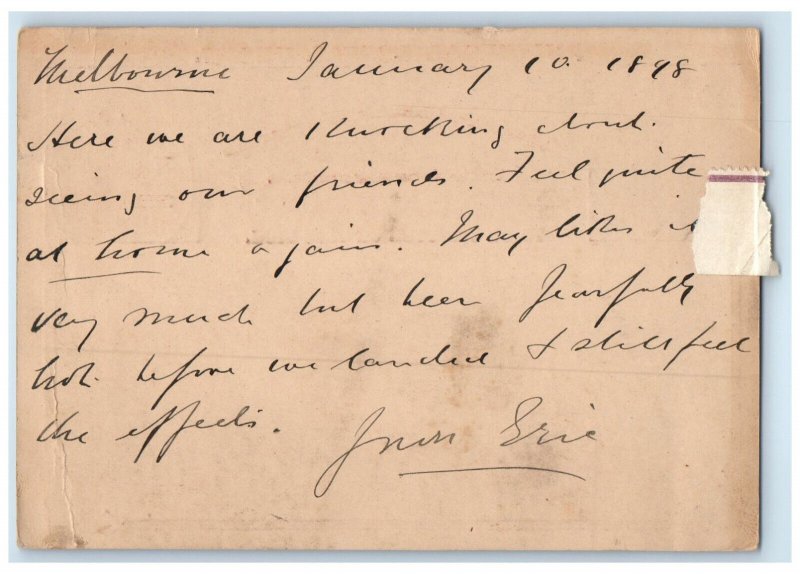 Melbourne January 10. 1898
Here we are knocking about.
seeing our friends. Feel quite
at home again. May likes it
very much but been fearfully
hot before we landed & still feel
the effects. Eric